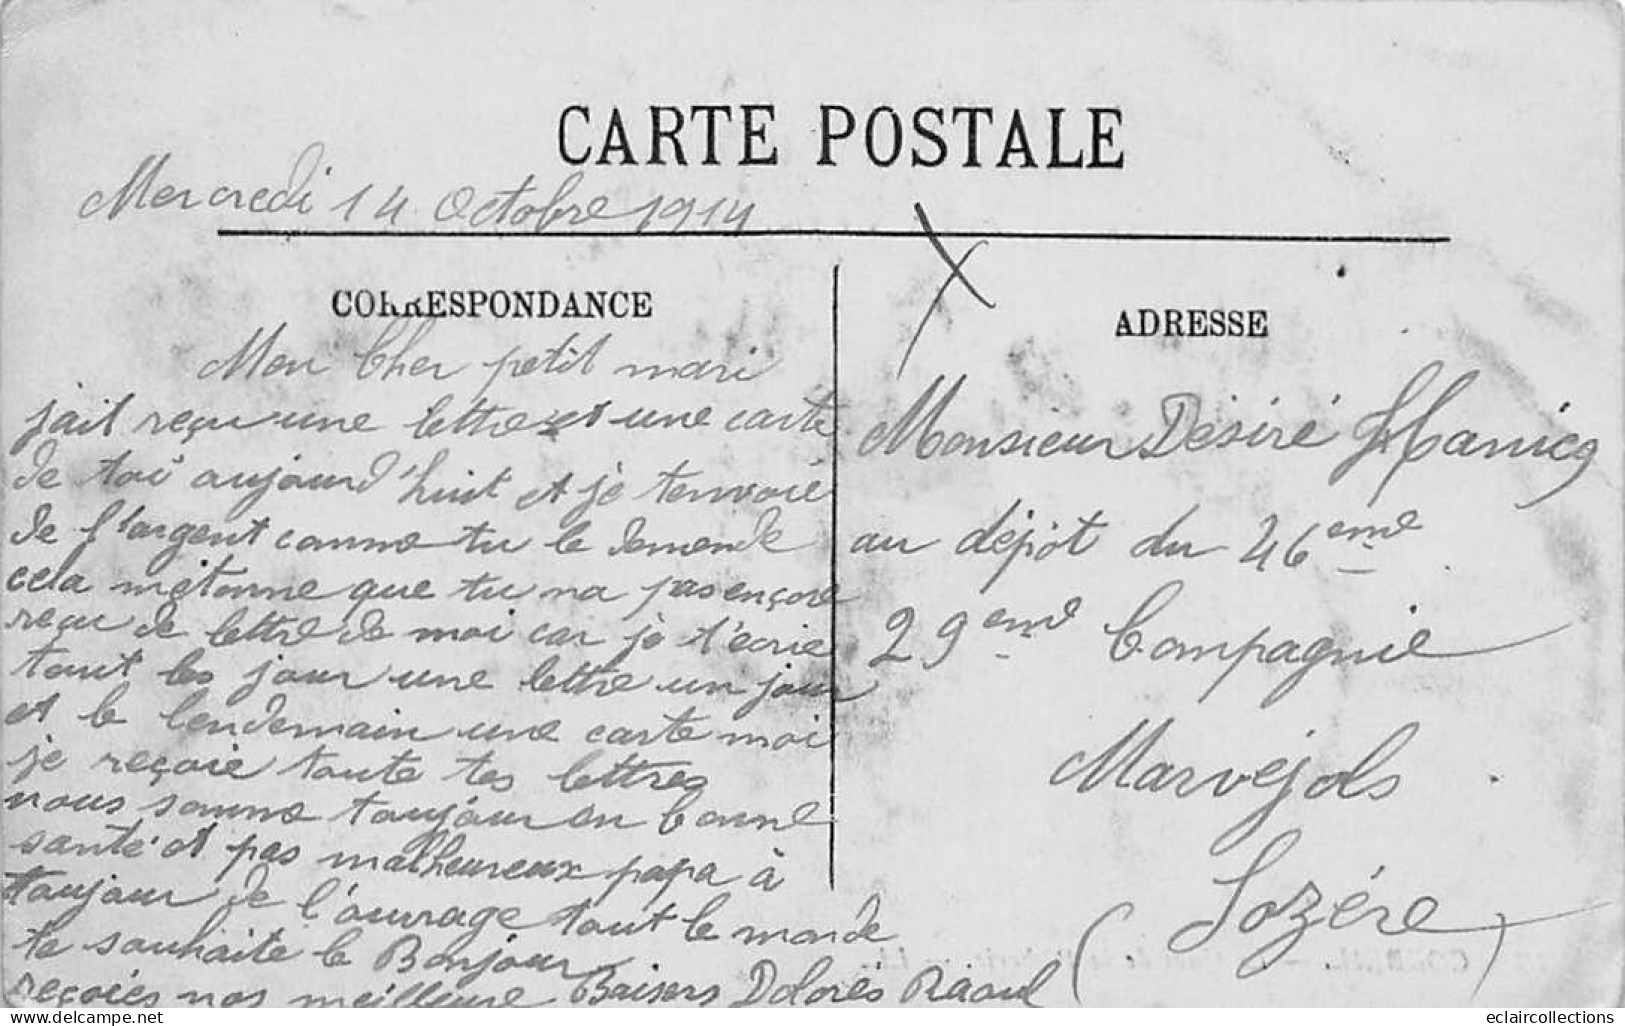 CARTE POSTALE
Mercredi 14 Octobre 1914
CORRESPONDANCE
Mon Cher petit mari
jait reçu une lettre et une carte
de toi aujourd'huit et je tenvoie
de l'argent comme tu le demende
cela métonne que tu na pas ençore
reçu de lettre de moi car je t'écrie
tout les jour une lettre un jour
et le lendemain une carte moi
je reçoie toute tes lettres
nous somme toujour en bonne
santé et pas malheureux papa à
toujour de l'ouvrage tout le monde
te souhaite le Bonjour
reçoies nos meilleure Baisers Dolorès Raoul
ADRESSE
Monsieur Désiré
au dépôt du 46eme
29eme Compagnie
Marvéjols
(Lozére)
delcampe.net
eclaircollections